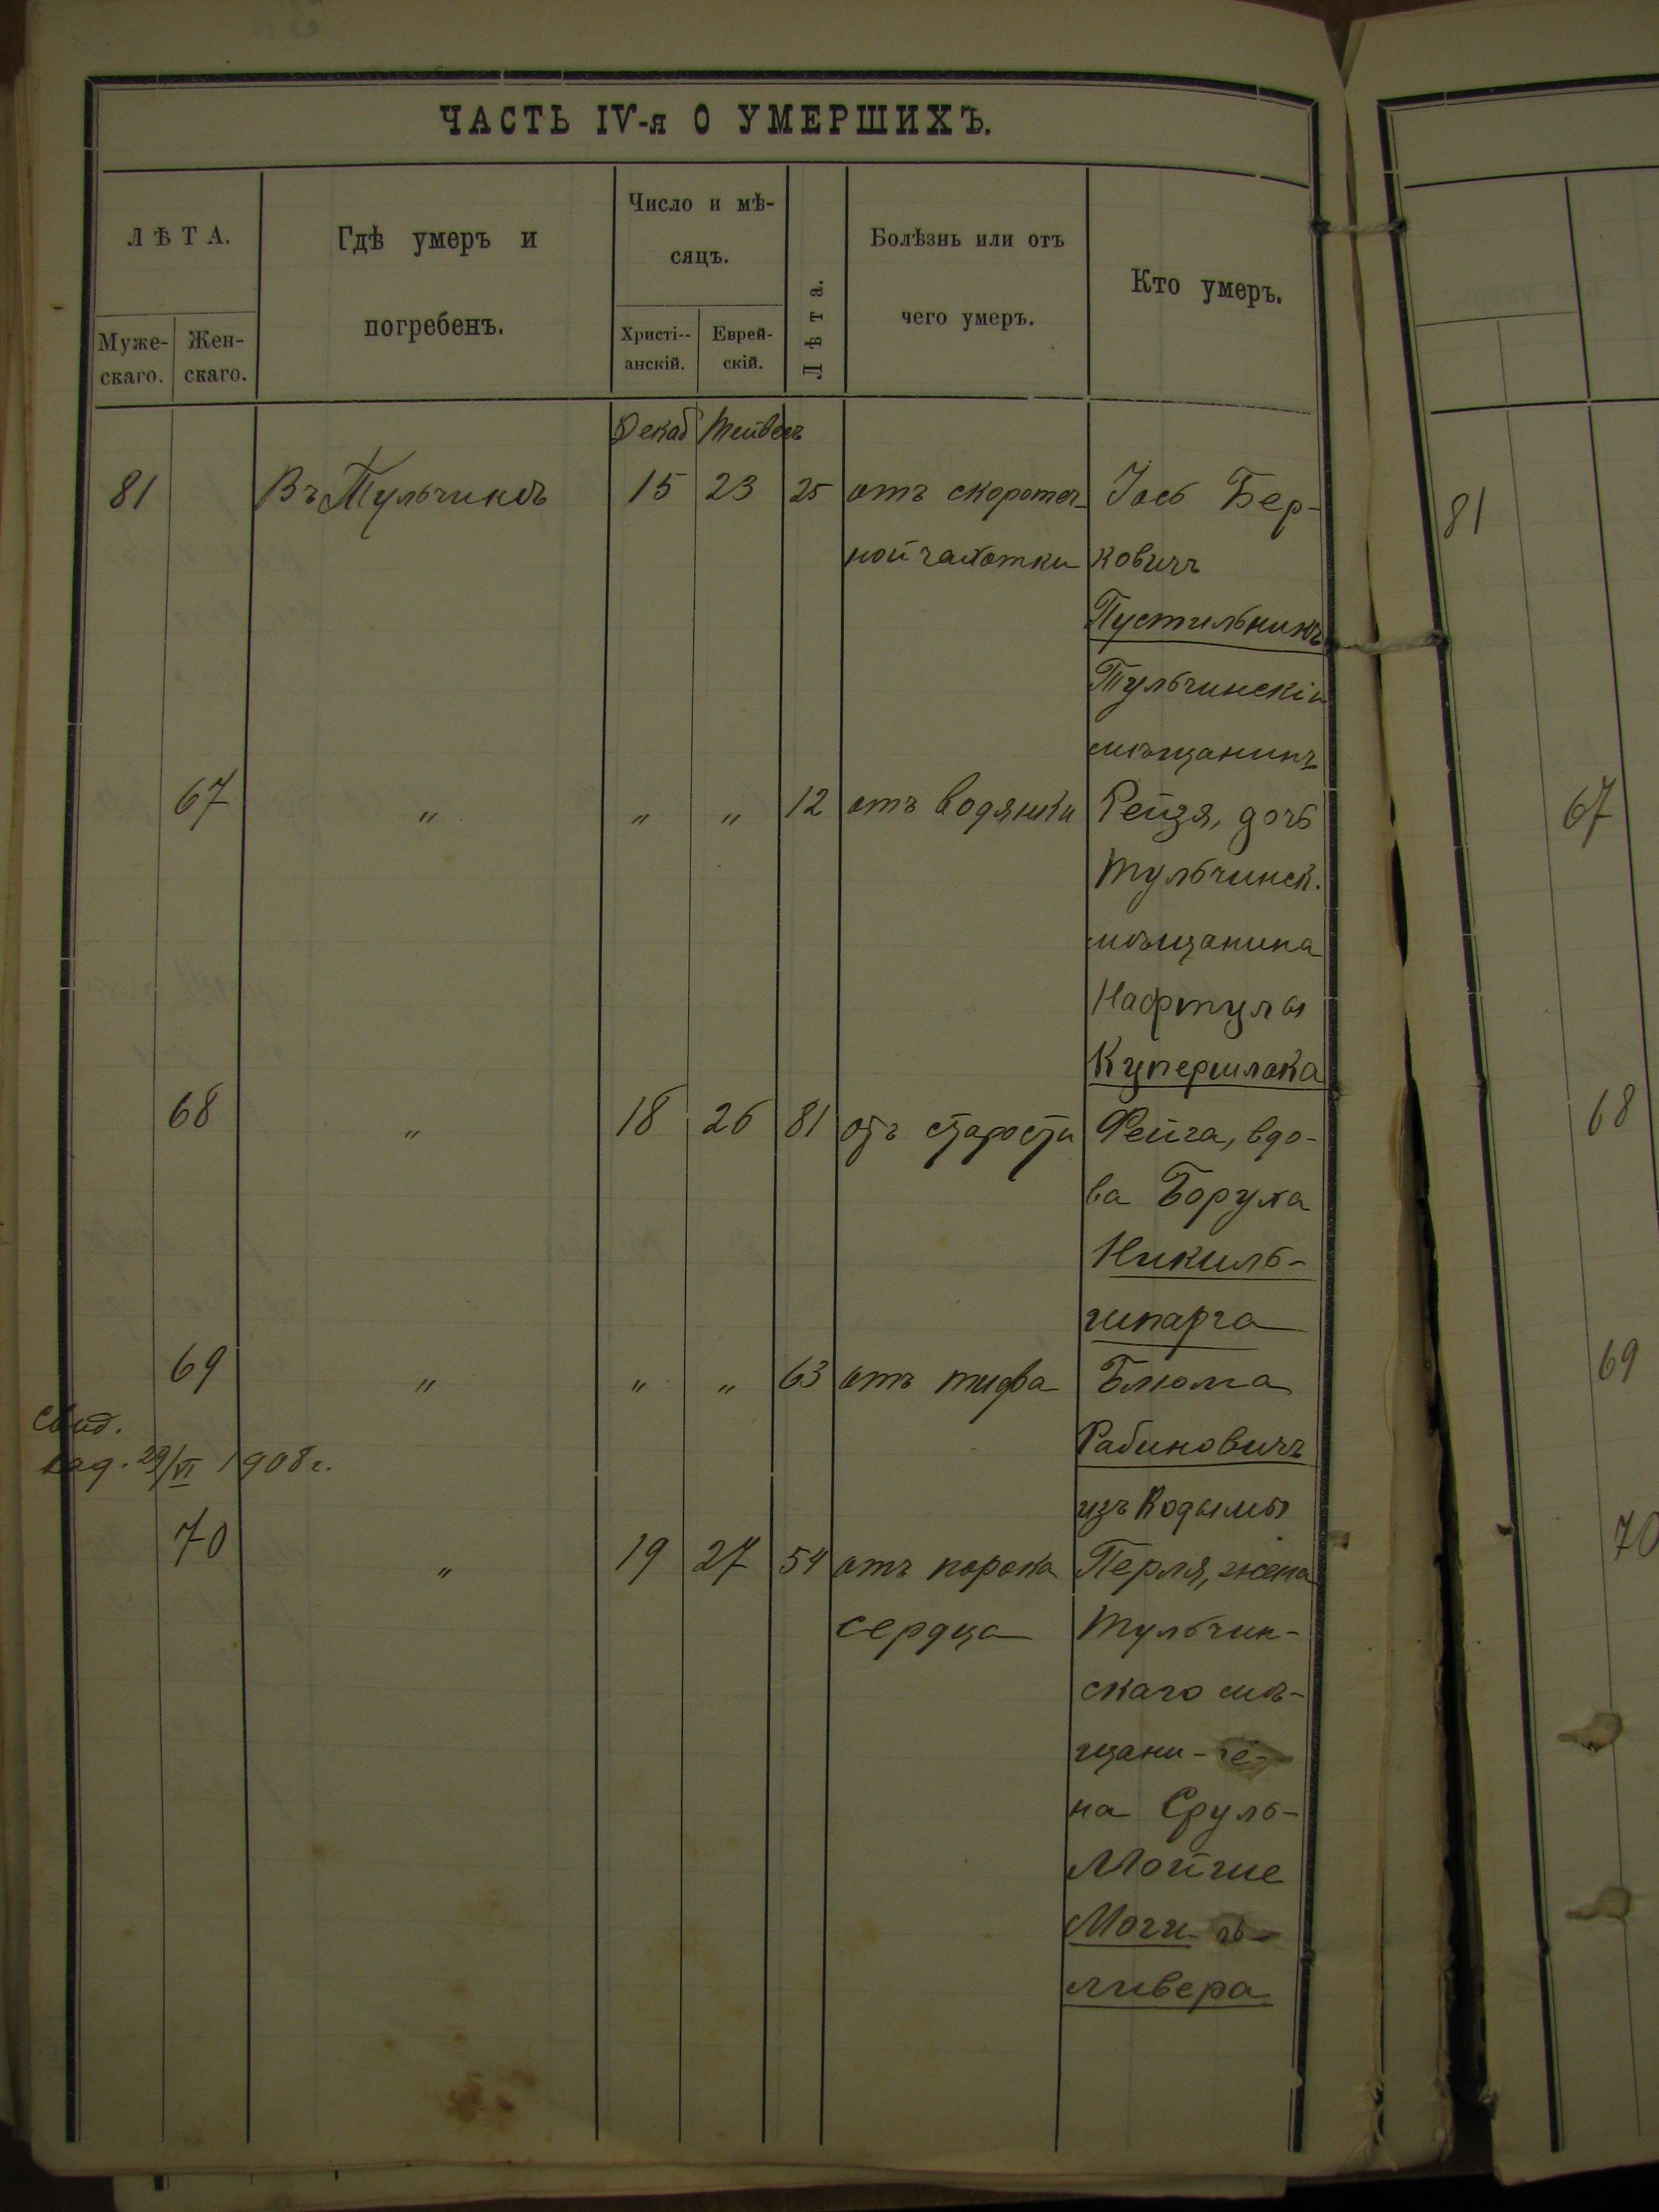 ЧАСТЬ IV-я О УМЕРШИХЪ.
ЛѢТА.
Муже-
скаго.
Жен-
скаго.
Гдѣ умеръ и
погребенъ.
Число и мѣ-
сяцъ.
Христі--
анскій.
Еврей-
скій.
Лѣта.
Болѣзнь или отъ
чего умеръ.
Кто умеръ.
Декаб Тейвесъ
81 Въ Тульчинѣ 15 23 25 отъ скоротеч- Іось Бер- 81
ной чахотки ковичъ
Пустильникъ
Тульчинскій
мѣщанинъ
67 " " " 12 отъ водянки Рейзя, дочь 67
Тульчинск.
мѣщанина
Нафтулы
Купершлака
68 " 18 26 81 отъ старости Фейга, вдо- 68
ва Боруха
Никиль-
шпарга
69 " " " 63 отъ тифа Блюма 69
Свид.
выд. 29/VI 1908 г.
Рабиновичъ
изъ Кодымы
70 " 19 27 54 отъ порока Перля, жена 70
сердца Тульчин-
скаго мѣ-
щани-
на Сруль-
Мойше
Моги-
ливера